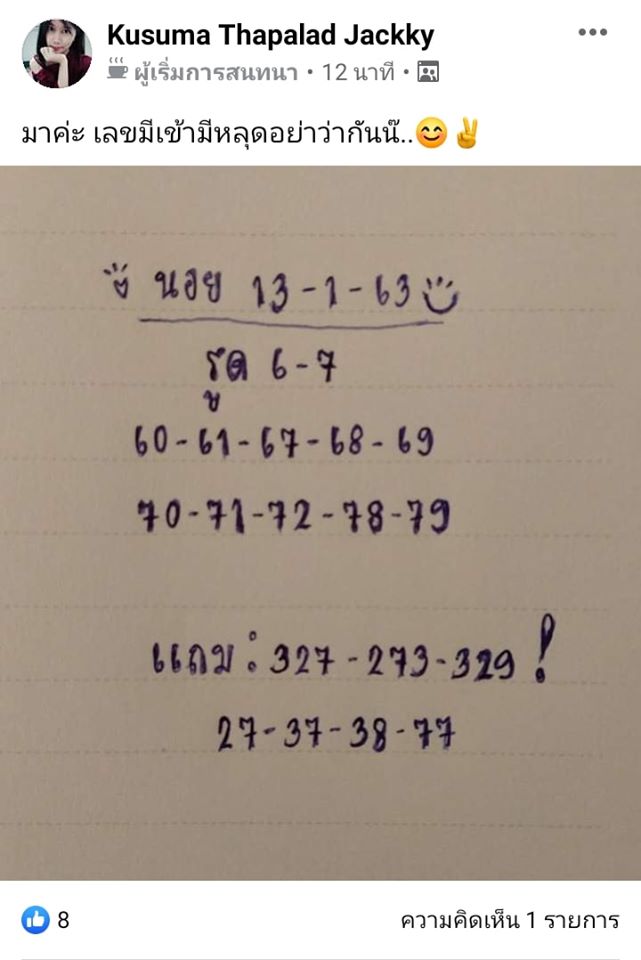 Kusuma Thapalad Jackky
ผู้เริ่มการสนทนา • 12 นาที •
มาค่ะ เลขมีเข้ามีหลุดอย่าว่ากันน๊..😊✌️
นอย 13-1-63
รูด 6-7
60-61-67-68-69
70-71-72-78-79
แถม: 327-273-329!
27-37-38-77
8
ความคิดเห็น 1 รายการ